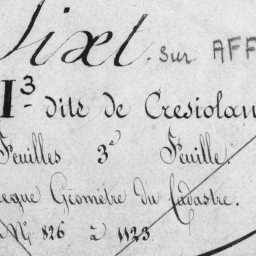 Sixt. sur AFF
I³ dite de Cresiolan
Feuilles 3e Feuille.
eque Géomètre du Cadastre.
N° 826 à 1123